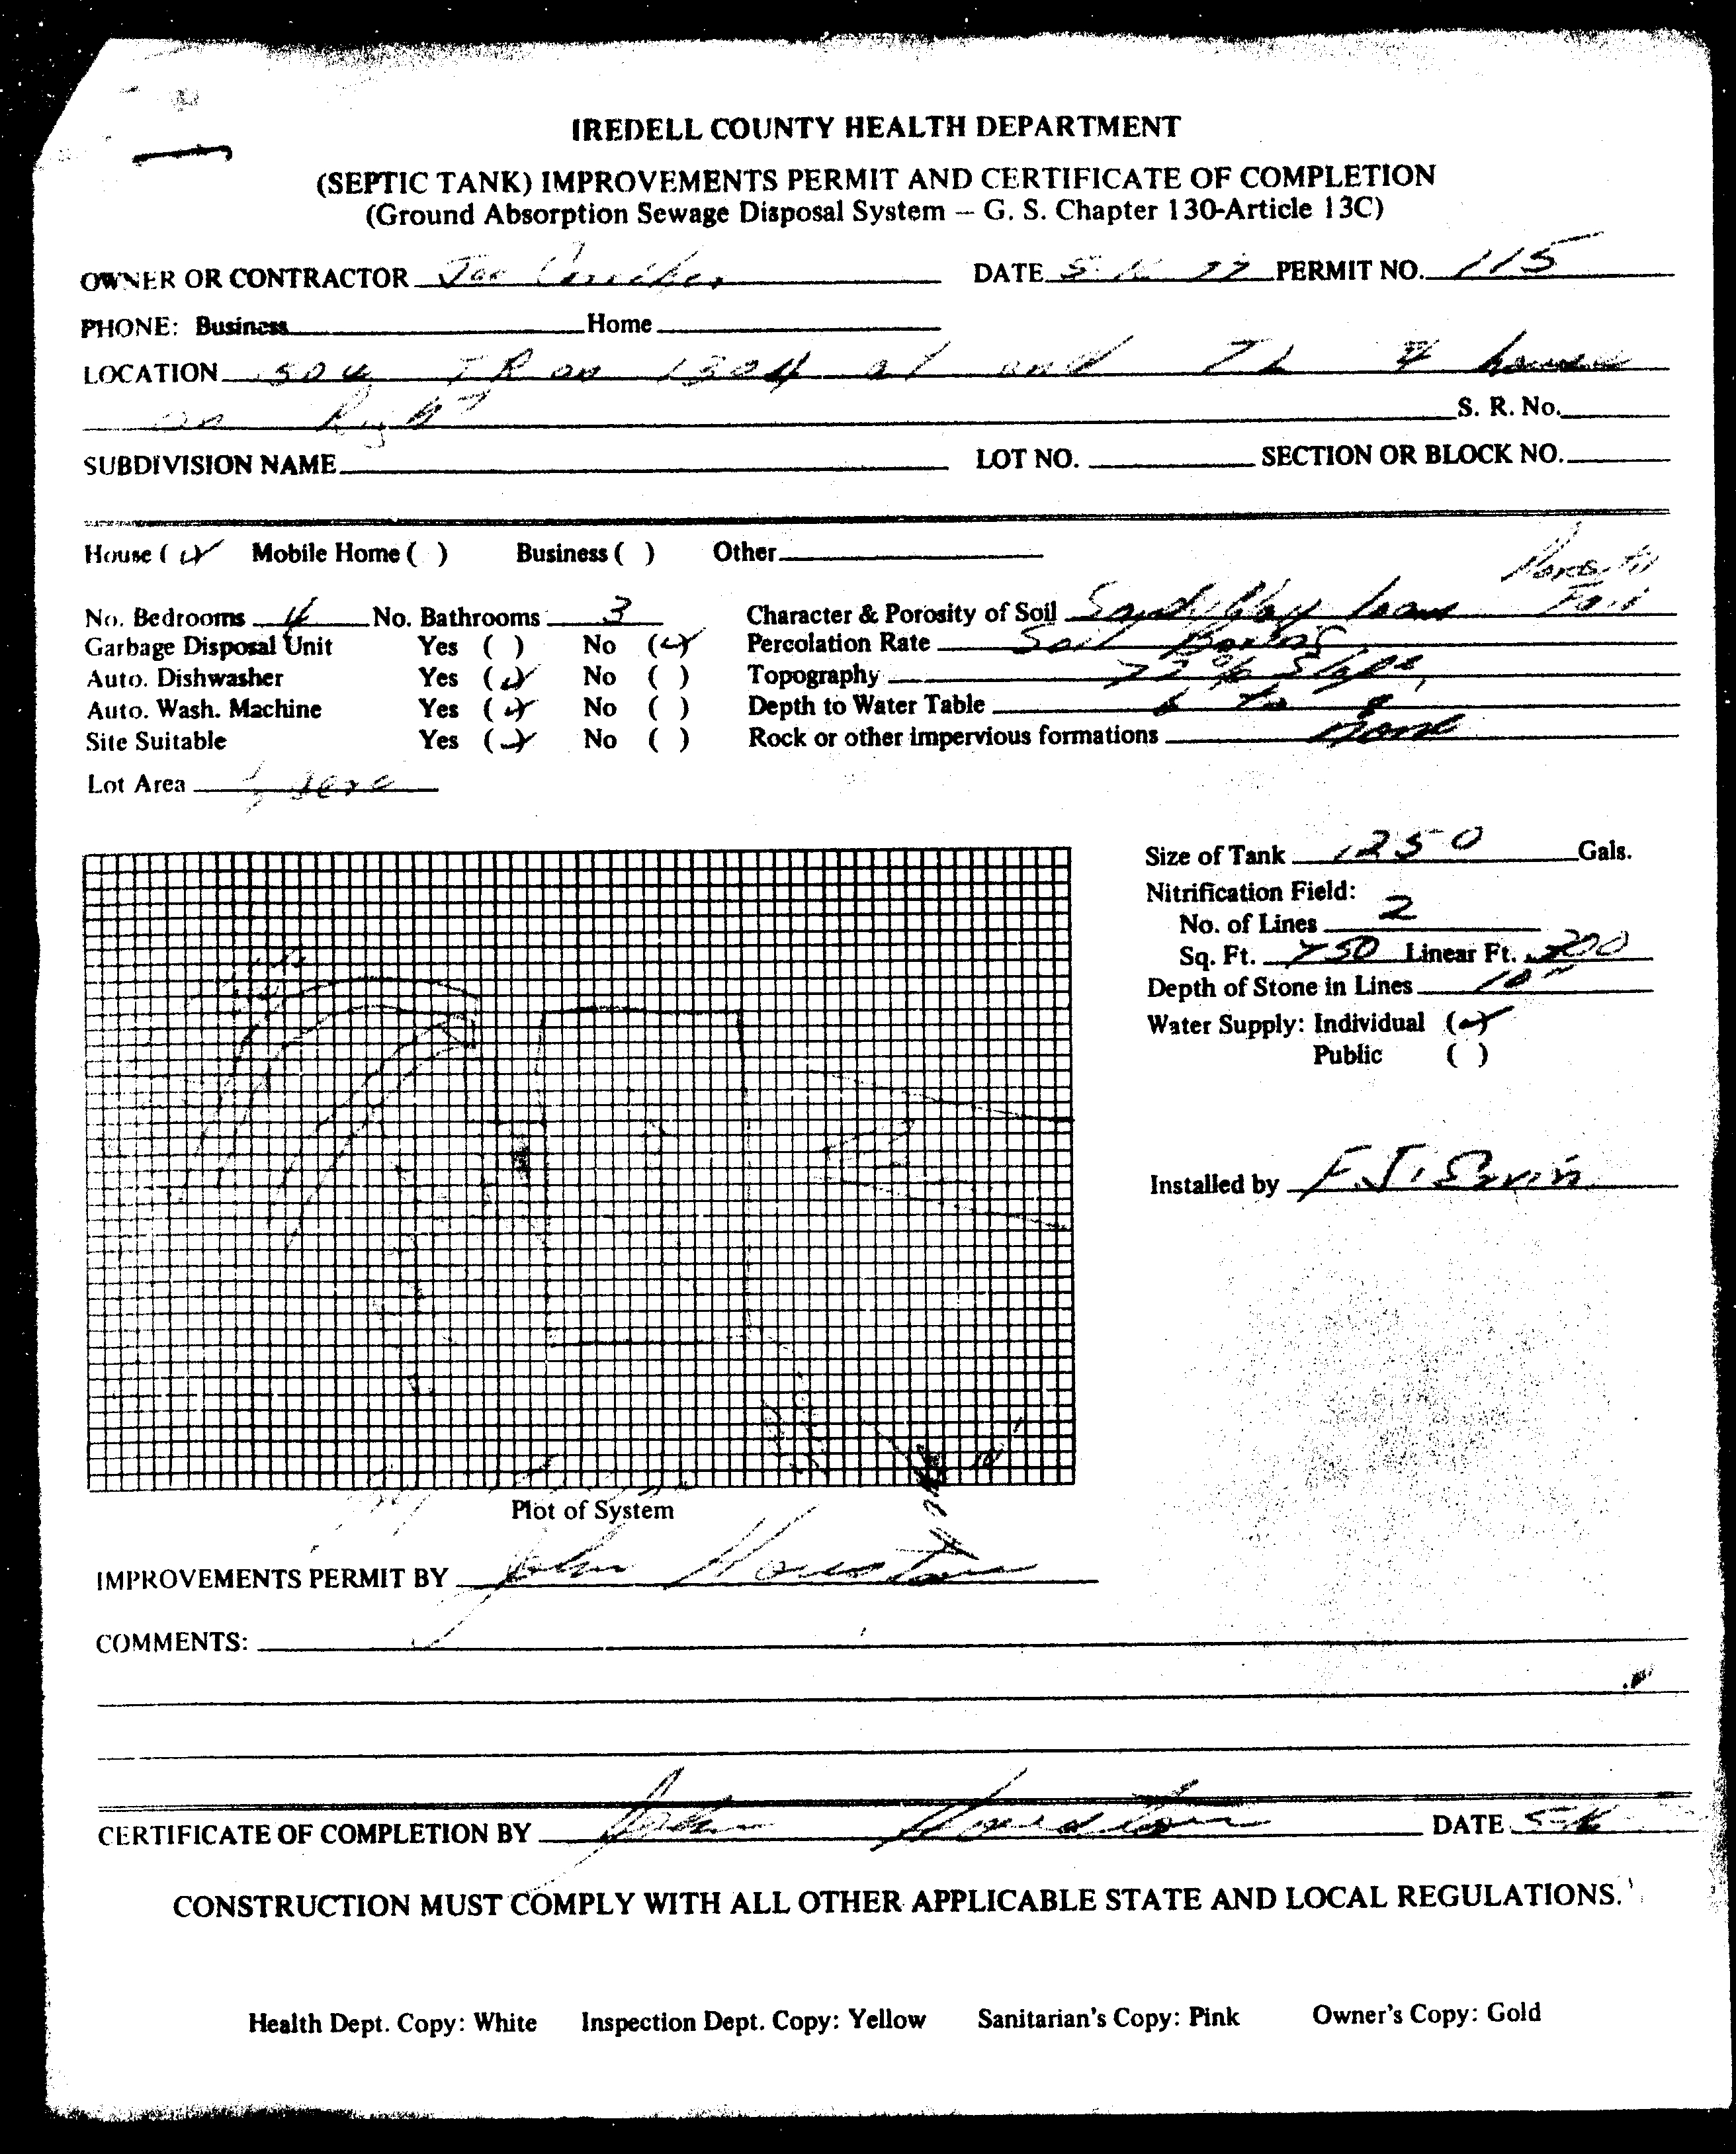 IREDELL COUNTY HEALTH DEPARTMENT
(SEPTIC TANK) IMPROVEMENTS PERMIT AND CERTIFICATE OF COMPLETION
(Ground Absorption Sewage Disposal System – G. S. Chapter 130-Article 13C)
OWNER OR CONTRACTOR Joe DATE 5 77 PERMIT NO. 115
PHONE: Business Home
LOCATION TR on 1304 at end TL 4 house
on Right S. R. No.
SUBDIVISION NAME LOT NO. SECTION OR BLOCK NO.
House ( ) Mobile Home ( ) Business ( ) Other
No. Bedrooms 4 No. Bathrooms 3 Character & Porosity of Soil Sandy Clay loam Fair
Garbage Disposal Unit Yes ( ) No ( ) Percolation Rate Soil Boring
Auto. Dishwasher Yes ( ) No ( ) Topography % Slope
Auto. Wash. Machine Yes ( ) No ( ) Depth to Water Table 6 to 8
Site Suitable Yes ( ) No ( ) Rock or other impervious formations None
Lot Area acre
Size of Tank 1250 Gals.
Nitrification Field:
No. of Lines 2
Sq. Ft. 750 Linear Ft. 300
Depth of Stone in Lines 10"
Water Supply: Individual ( )
Public ( )
Installed by F. J. Ervin
Plot of System
IMPROVEMENTS PERMIT BY John Houston
COMMENTS:
CERTIFICATE OF COMPLETION BY John Houston DATE 5-16
CONSTRUCTION MUST COMPLY WITH ALL OTHER APPLICABLE STATE AND LOCAL REGULATIONS.
Health Dept. Copy: White Inspection Dept. Copy: Yellow Sanitarian's Copy: Pink Owner's Copy: Gold